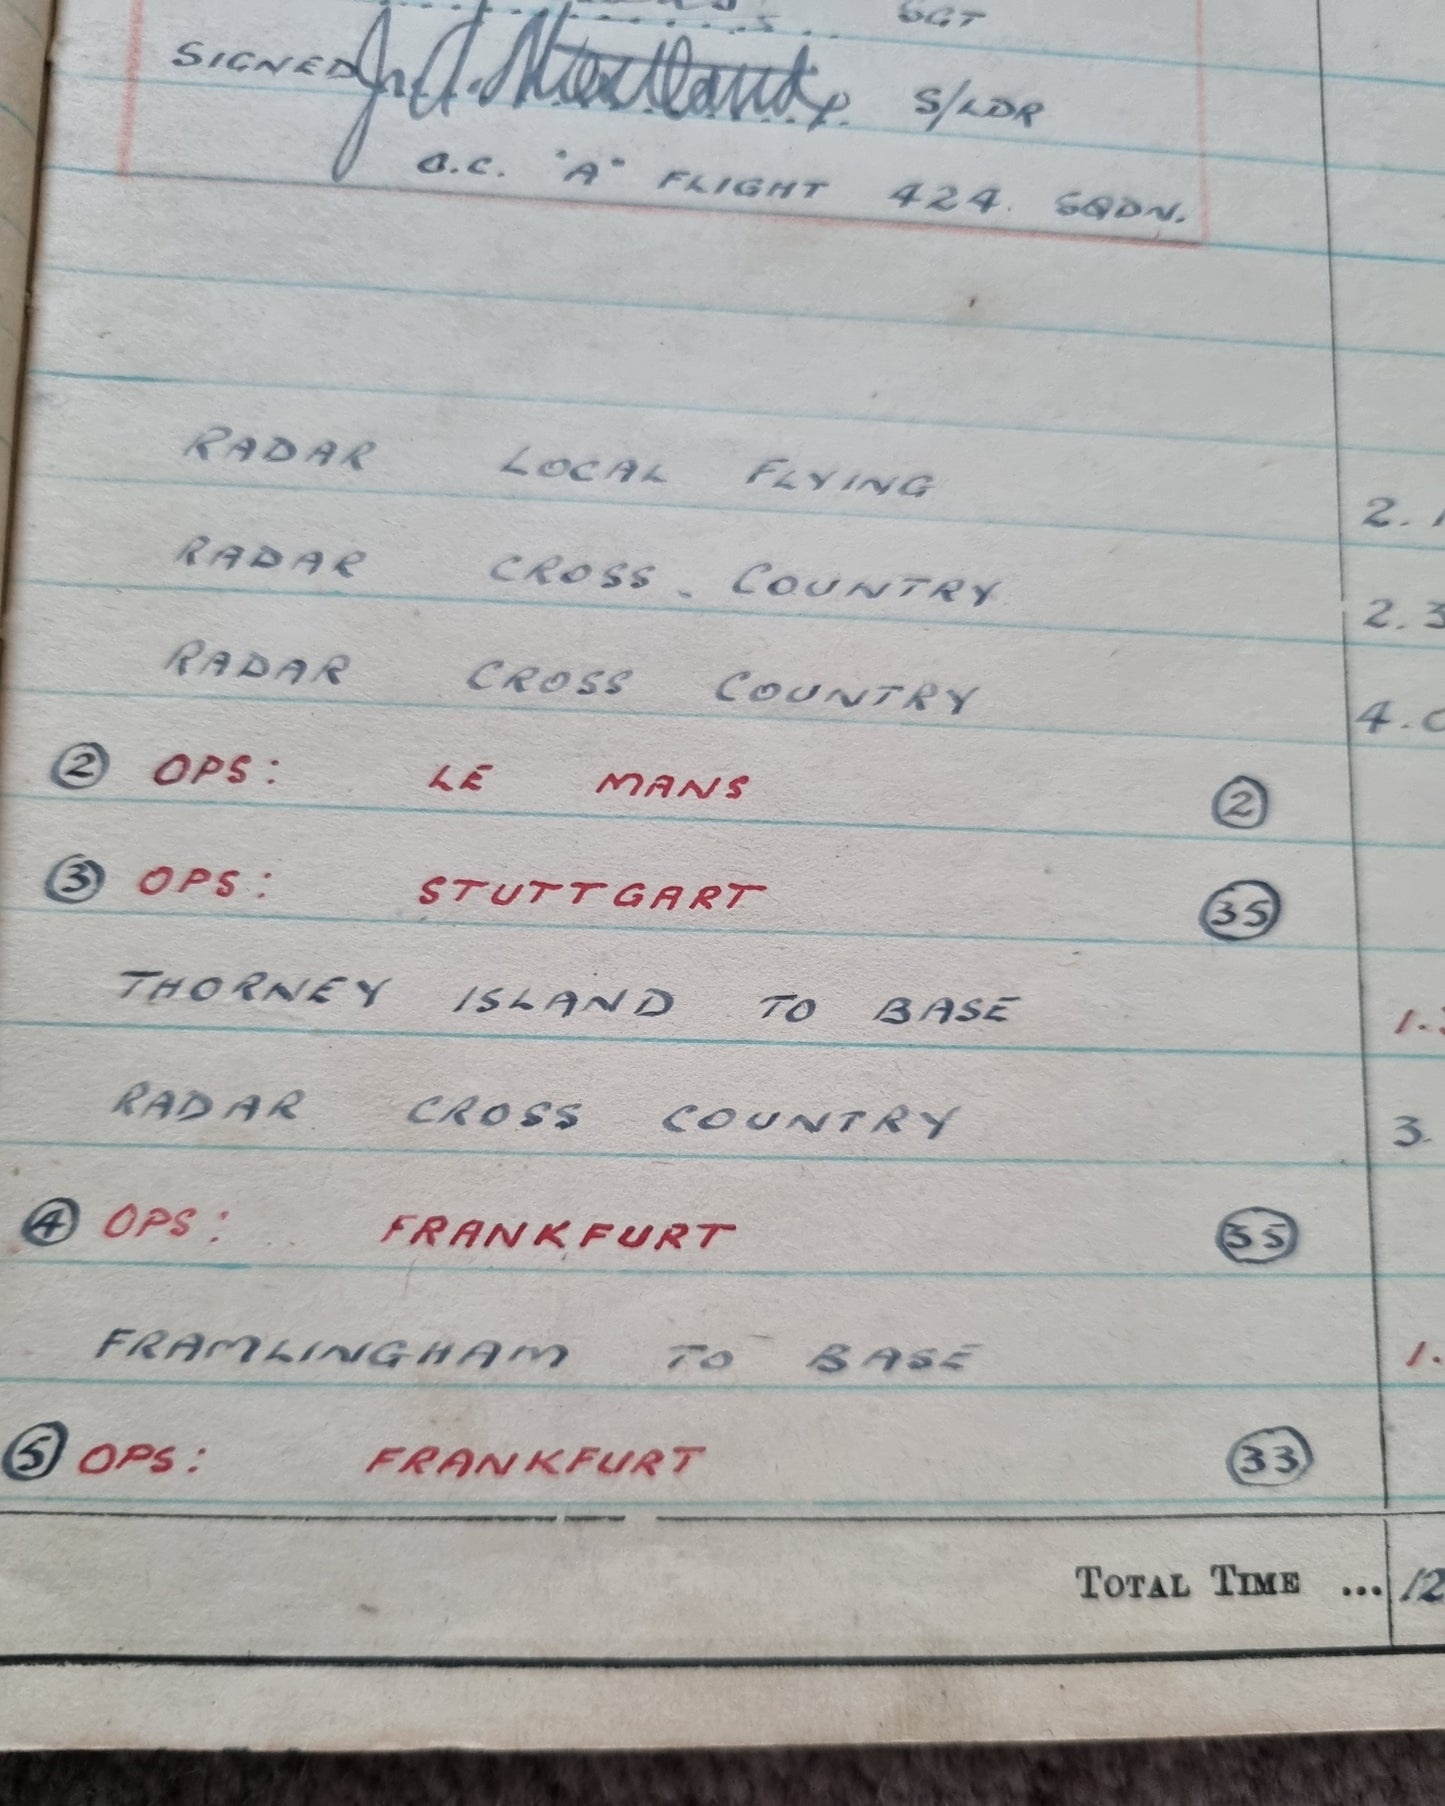 SGT
SIGNED S/LDR
O.C. "A" FLIGHT 424. SQDN.
RADAR LOCAL FLYING 2.1
RADAR CROSS. COUNTRY 2.3
RADAR CROSS COUNTRY 4.0
2 OPS: LE MANS 2
3 OPS: STUTTGART 35
THORNEY ISLAND TO BASE 1.
RADAR CROSS COUNTRY 3.
4 OPS: FRANKFURT 35
FRAMLINGHAM TO BASE 1.
5 OPS: FRANKFURT 33
TOTAL TIME ... 12